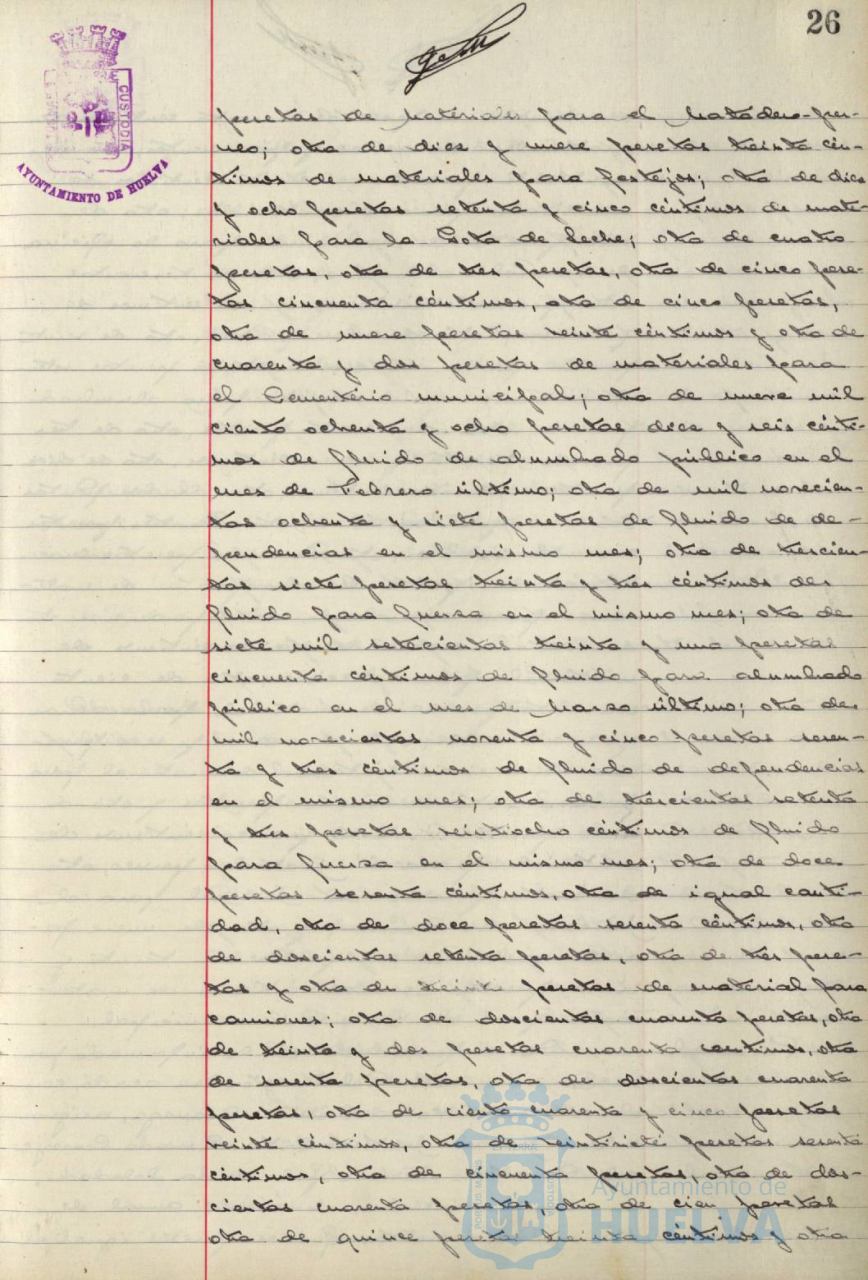 26
CUSTODIA
AYUNTAMIENTO DE HUELVA
pesetas de materiales para el Matadero-per-
neo; otra de diez y nueve pesetas treinta cén-
timos de materiales para festejos; otra de diez
y ocho pesetas setenta y cinco céntimos de mate-
riales para la Gota de Leche; otra de cuatro
pesetas, otra de tres pesetas, otra de cinco pese-
tas cincuenta céntimos, otra de cinco pesetas,
otra de nueve pesetas veinte céntimos y otra de
cuarenta y dos pesetas de materiales para
el Cementerio municipal; otra de nueve mil
ciento ochenta y ocho pesetas diez y seis cénti-
mos de fluido de alumbrado público en el
mes de Febrero último; otra de mil novecien-
tas ochenta y siete pesetas de fluido de de-
pendencias en el mismo mes; otra de trescien-
tas siete pesetas treinta y tres céntimos de
fluido para fuerza en el mismo mes; otra de
siete mil setecientas treinta y una pesetas
cincuenta céntimos de fluido para alumbrado
público en el mes de Marzo último; otra de
mil novecientas noventa y cinco pesetas sesen-
ta y tres céntimos de fluido de dependencias
en el mismo mes; otra de trescientas setenta
y tres pesetas veintiocho céntimos de fluido
para fuerza en el mismo mes; otra de doce
pesetas sesenta céntimos, otra de igual canti-
dad, otra de doce pesetas sesenta céntimos, otra
de doscientas setenta pesetas, otra de tres pese-
tas y otra de treinta pesetas de material para
camiones; otra de doscientas cuarenta pesetas, otra
de treinta y dos pesetas cuarenta centimos, otra
de sesenta pesetas, otra de doscientas cuarenta
pesetas, otra de ciento cuarenta y cinco pesetas
veinte céntimos, otra de veintisiete pesetas sesenta
céntimos, otra de cincuenta pesetas, otra de dos-
cientas cuarenta pesetas, otra de cien pesetas
otra de quince pesetas treinta centimos y otra
Ayuntamiento de
HUELVA